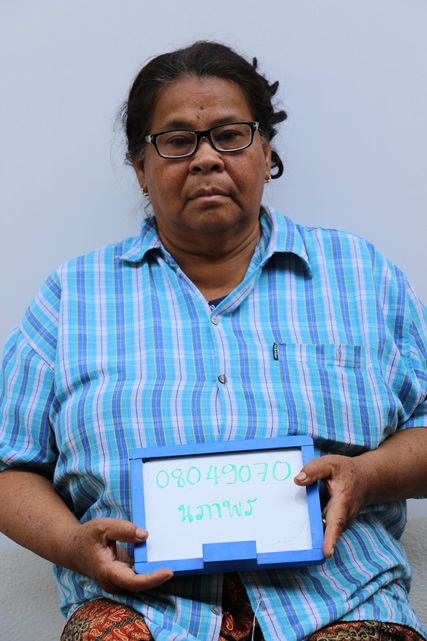 08049070
นภาพร